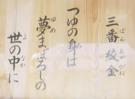 三番絞金
つゆの身は
夢まぼろしの
世の中に